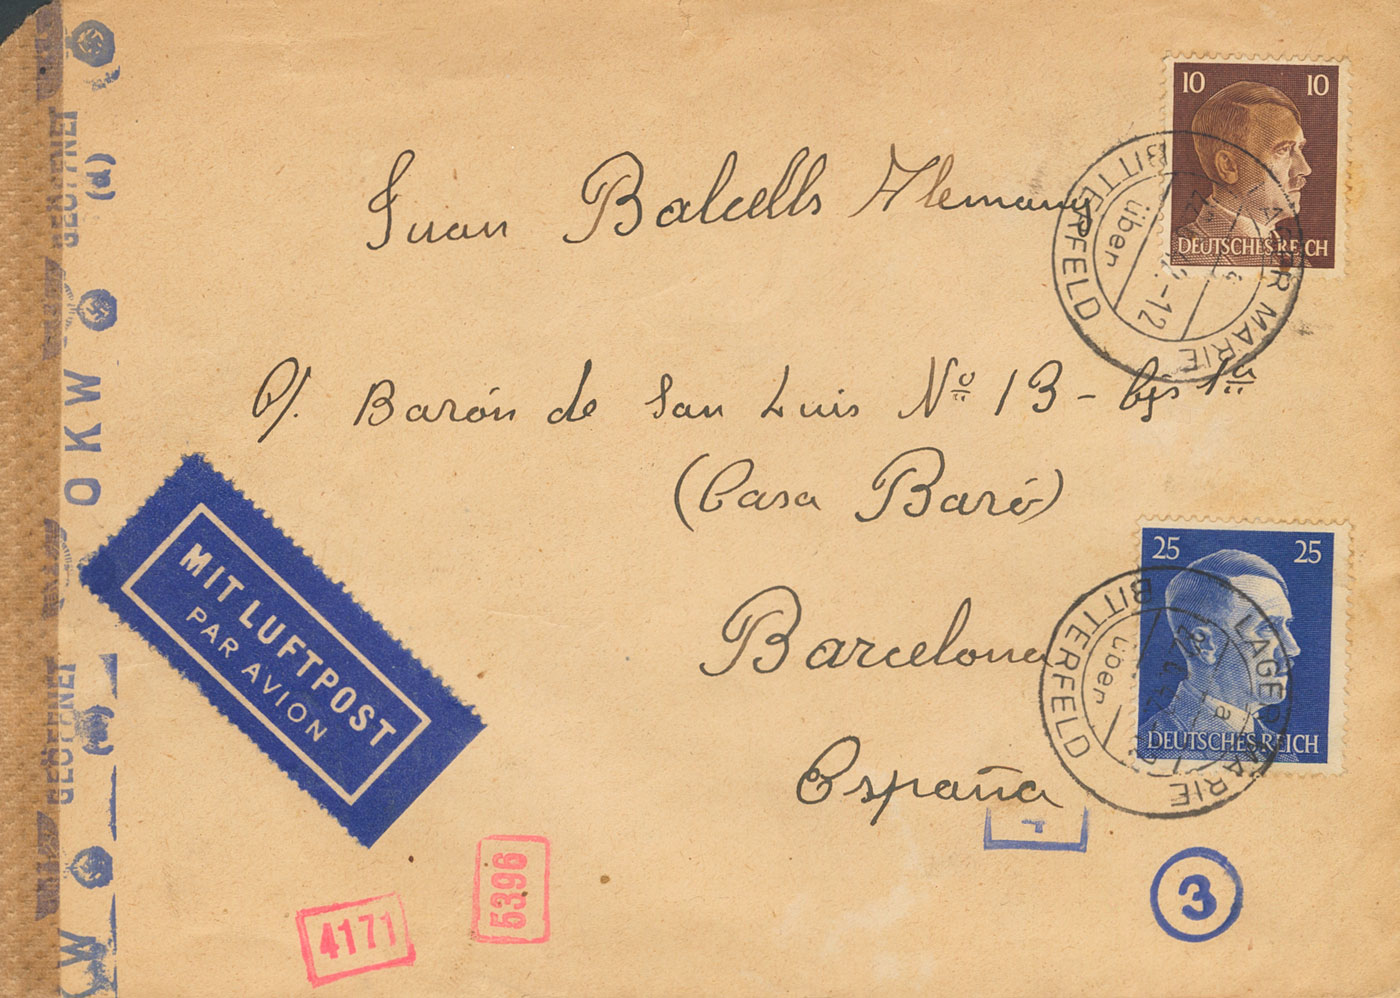 10 10
DEUTSCHES REICH
LAGER MARIE
über
BITTERFELD
a
-12
Juan Balcells Alemany
C/. Barón de San Luis Nº 13 - bjs 1ª
(Casa Baró)
Barcelona
España
25 25
DEUTSCHES REICH
LAGER MARIE
über
BITTERFELD
a
MIT LUFTPOST
PAR AVION
GEÖFFNET
(d)
OKW
GEÖFFNET
(d)
W
4171
5396
3